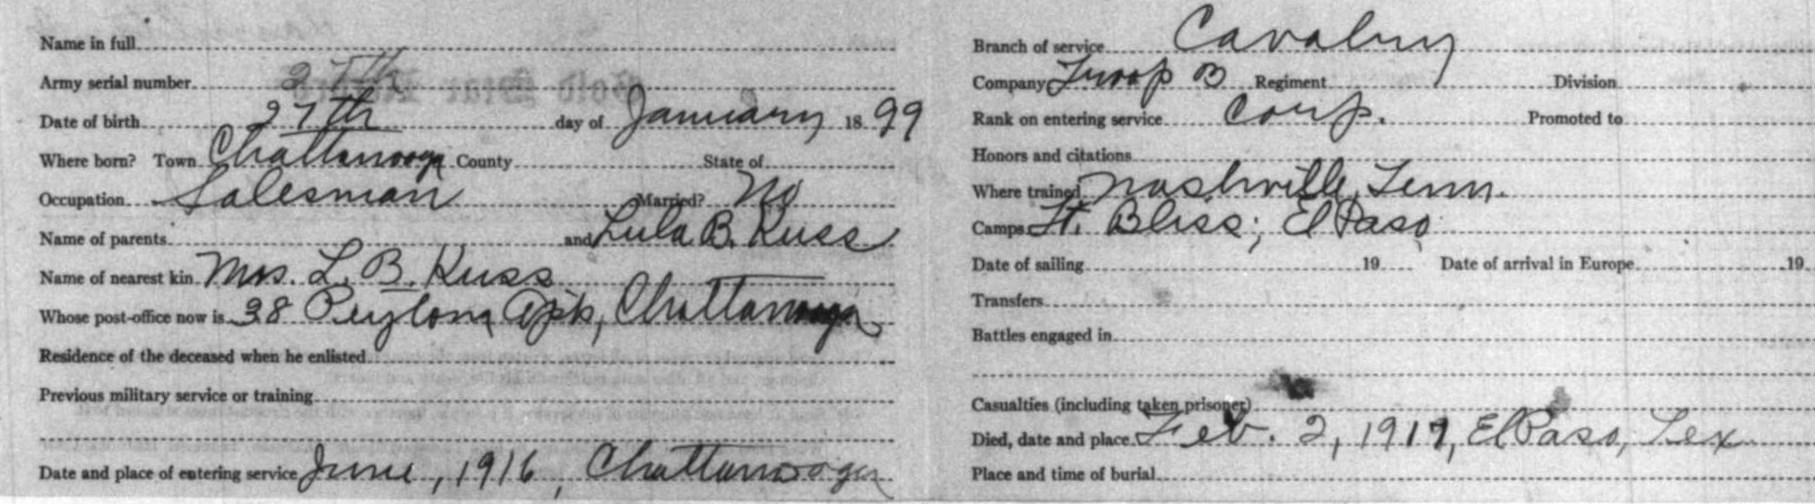 Name in full
Army serial number 27th
Date of birth 27th day of January 1899
Where born? Town Chattanooga County State of
Occupation Salesman Married? No
Name of parents and Lula B. Kuss
Name of nearest kin Mrs. L. B. Kuss
Whose post-office now is 38 Peylona Apts, Chattanooga
Residence of the deceased when he enlisted
Previous military service or training
Date and place of entering service June, 1916, Chattanooga
Branch of service Cavalry
Company Troop B Regiment Division
Rank on entering service Corp. Promoted to
Honors and citations
Where trained Nashville, Tenn.
Camps Ft. Bliss; El Paso
Date of sailing 19 Date of arrival in Europe 19
Transfers
Battles engaged in
Casualties (including taken prisoner)
Died, date and place Feb. 2, 1917, El Paso, Tex
Place and time of burial